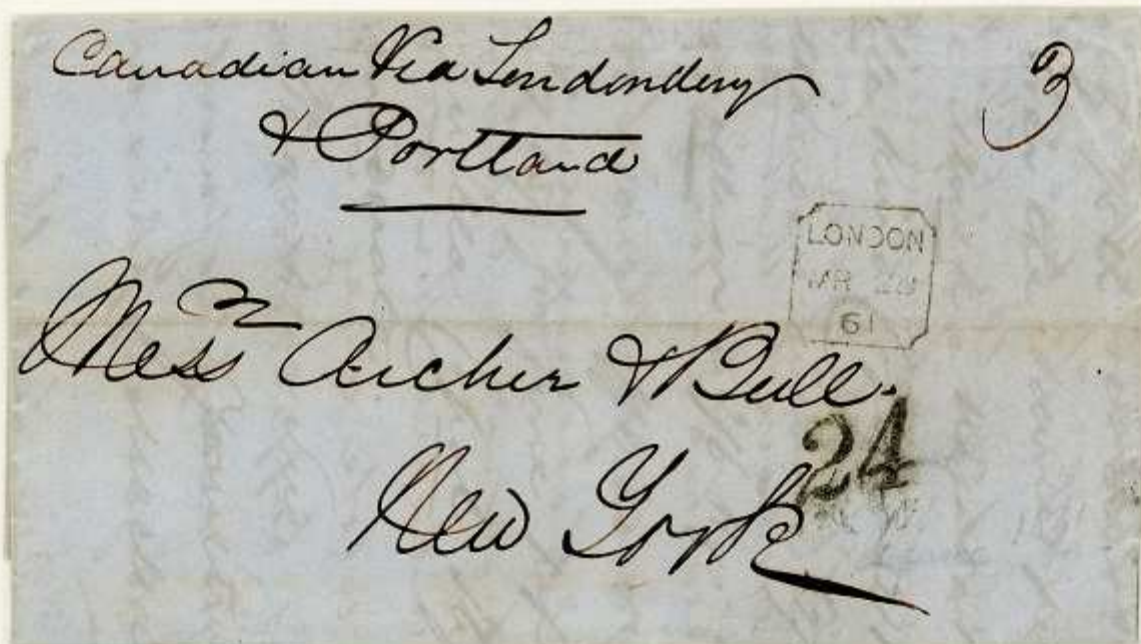 Canadian Via Londonderry
& Portland
3
LONDON
MAR 28
61
Messrs Archer & Bull.
24
New York